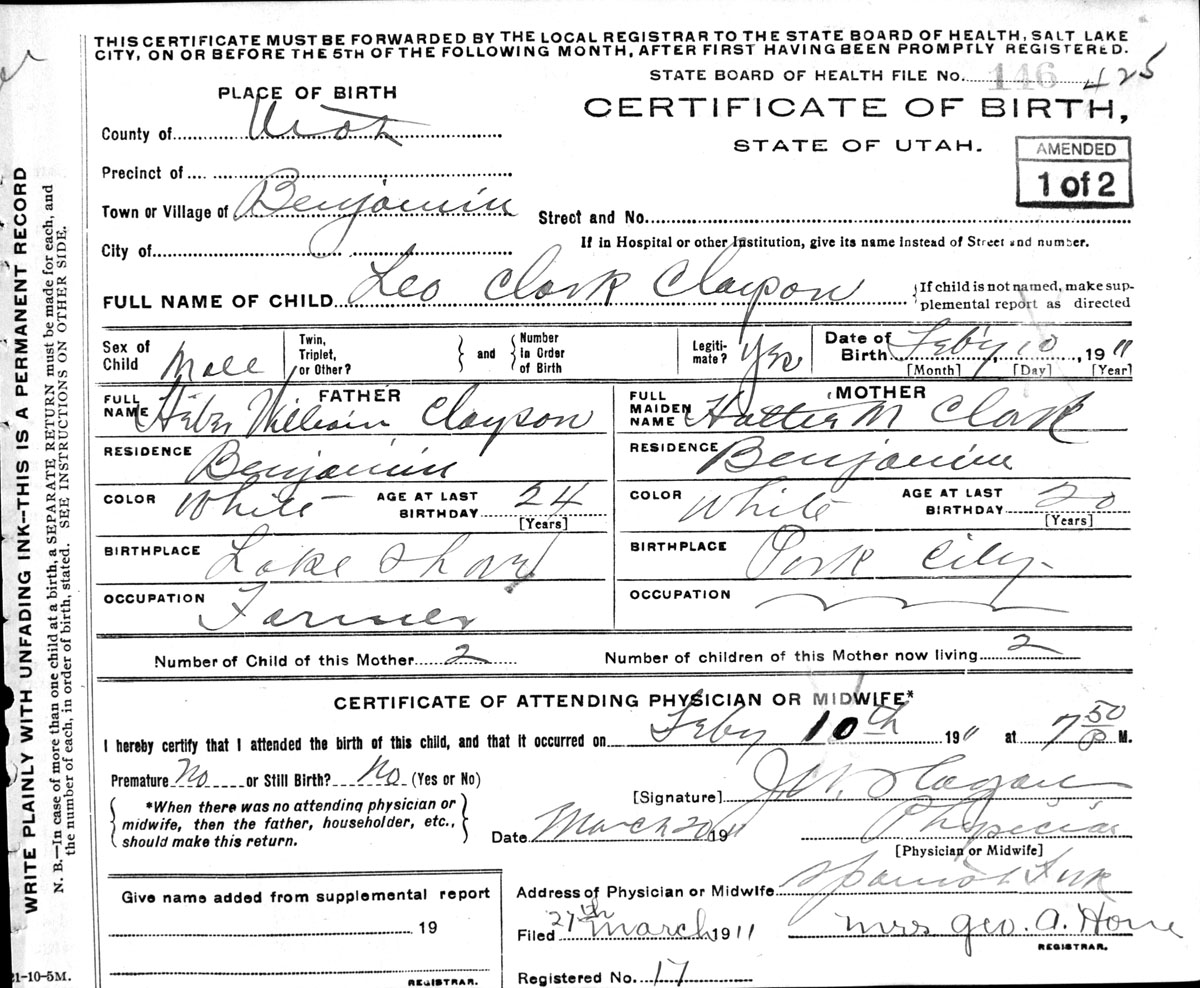 THIS CERTIFICATE MUST BE FORWARDED BY THE LOCAL REGISTRAR TO THE STATE BOARD OF HEALTH, SALT LAKE
CITY, ON OR BEFORE THE 5TH OF THE FOLLOWING MONTH, AFTER FIRST HAVING BEEN PROMPTLY REGISTERED.
STATE BOARD OF HEALTH FILE No. 146 425
PLACE OF BIRTH
CERTIFICATE OF BIRTH,
STATE OF UTAH.
AMENDED
1 of 2
County of Utah
Precinct of
Town or Village of Benjamin
Street and No.
City of
If in Hospital or other Institution, give its name instead of Street and number.
FULL NAME OF CHILD Leo Clark Clayson
{If child is not named, make sup-
plemental report as directed
Sex of Child Male
Twin, Triplet, or Other?
} and { Number in Order of Birth
Legiti-mate? Yes
Date of Birth Feb'y 10, 1911
[Month] [Day] [Year]
FATHER
FULL NAME Heber William Clayson
RESIDENCE Benjamin
COLOR White AGE AT LAST BIRTHDAY 24
[Years]
BIRTHPLACE Lake Shore
OCCUPATION Farmer
MOTHER
FULL MAIDEN NAME Hattie M Clark
RESIDENCE Benjamin
COLOR White AGE AT LAST BIRTHDAY 20
[Years]
BIRTHPLACE Park City
OCCUPATION
Number of Child of this Mother 2 Number of children of this Mother now living 2
CERTIFICATE OF ATTENDING PHYSICIAN OR MIDWIFE*
I hereby certify that I attended the birth of this child, and that it occurred on Feby 10th 1911 at 7 50 P M.
Premature No or Still Birth? No (Yes or No)
{*When there was no attending physician or
midwife, then the father, householder, etc.,
should make this return.}
[Signature] J. W. Hagan
Date March 20 1911 Physician
[Physician or Midwife]
Address of Physician or Midwife Spanish Fork
Give name added from supplemental report
19
REGISTRAR.
Filed 27th March 1911 Mrs Geo. A. Hone
REGISTRAR.
Registered No. 17
21-10-5M.
WRITE PLAINLY WITH UNFADING INK—THIS IS A PERMANENT RECORD
N. B.—In case of more than one child at a birth, a SEPARATE RETURN must be made for each, and
the number of each, in order of birth, stated. SEE INSTRUCTIONS ON OTHER SIDE.